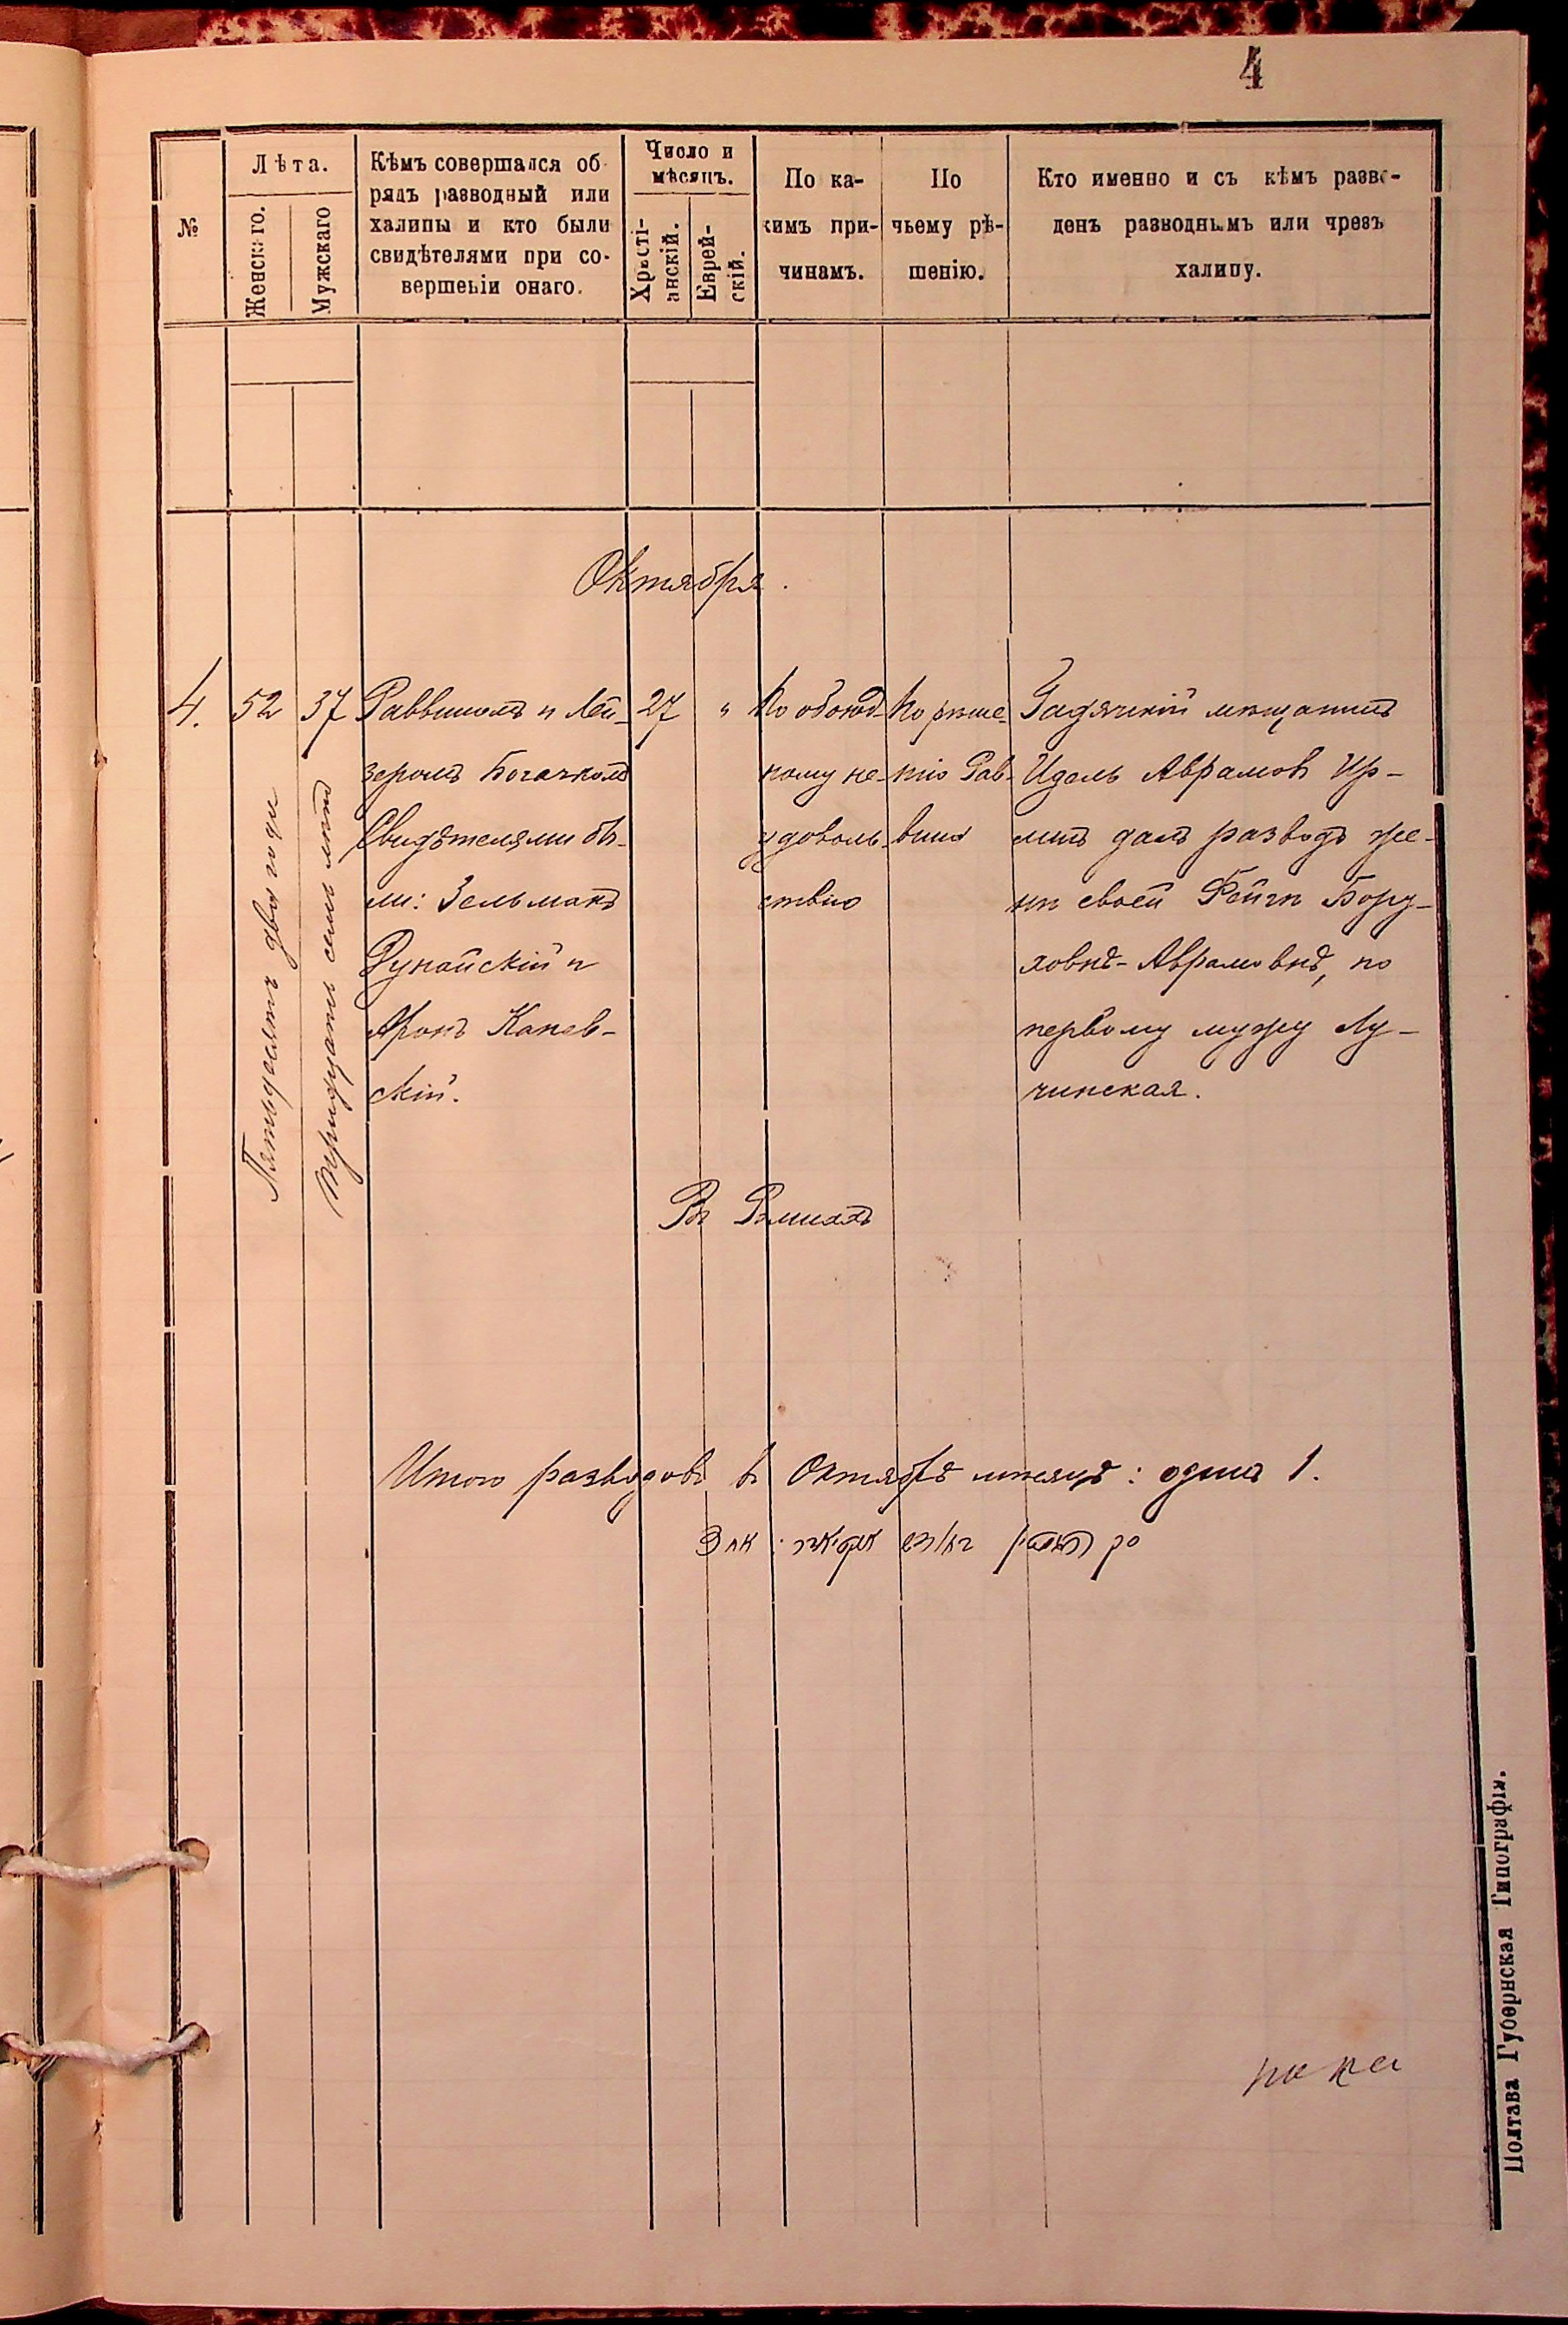 4
№
Лѣта.
Женскаго.
Мужскаго
Кѣмъ совершался об-
рядъ разводный или
халипы и кто были
свидѣтелями при со-
вершеніи онаго.
Число и
мѣсяцъ.
Христі-
анскій.
Еврей-
скій.
По ка-
кимъ при-
чинамъ.
По
чьему рѣ-
шенію.
Кто именно и съ кѣмъ разве-
денъ разводнымъ или чрезъ
халипу.
Октября.
4.
52
Пятьдесятъ два года
37
тридцать семь лѣтъ
Раввиномъ и Лей-
зеромъ Богачкомъ
Свидѣтелями бы-
ли: Зельманъ
Дунайскій и
Аронъ Канев-
скій.
27
"
По обоюд-
ному не-
удоволь-
ствію
По рѣше-
нію Рав-
вина
Гадячскій мѣщанинъ
Идель Аврамовъ Ир-
линъ далъ разводъ же-
нѣ своей Фейгѣ Бору-
ховнѣ-Аврамовнѣ, по
первому мужу Лу-
чинская.
Въ Ромнахъ
Итого разводовъ въ Октябрѣ мѣсяцѣ: одинъ 1.
Полтава Губернская Типографія.